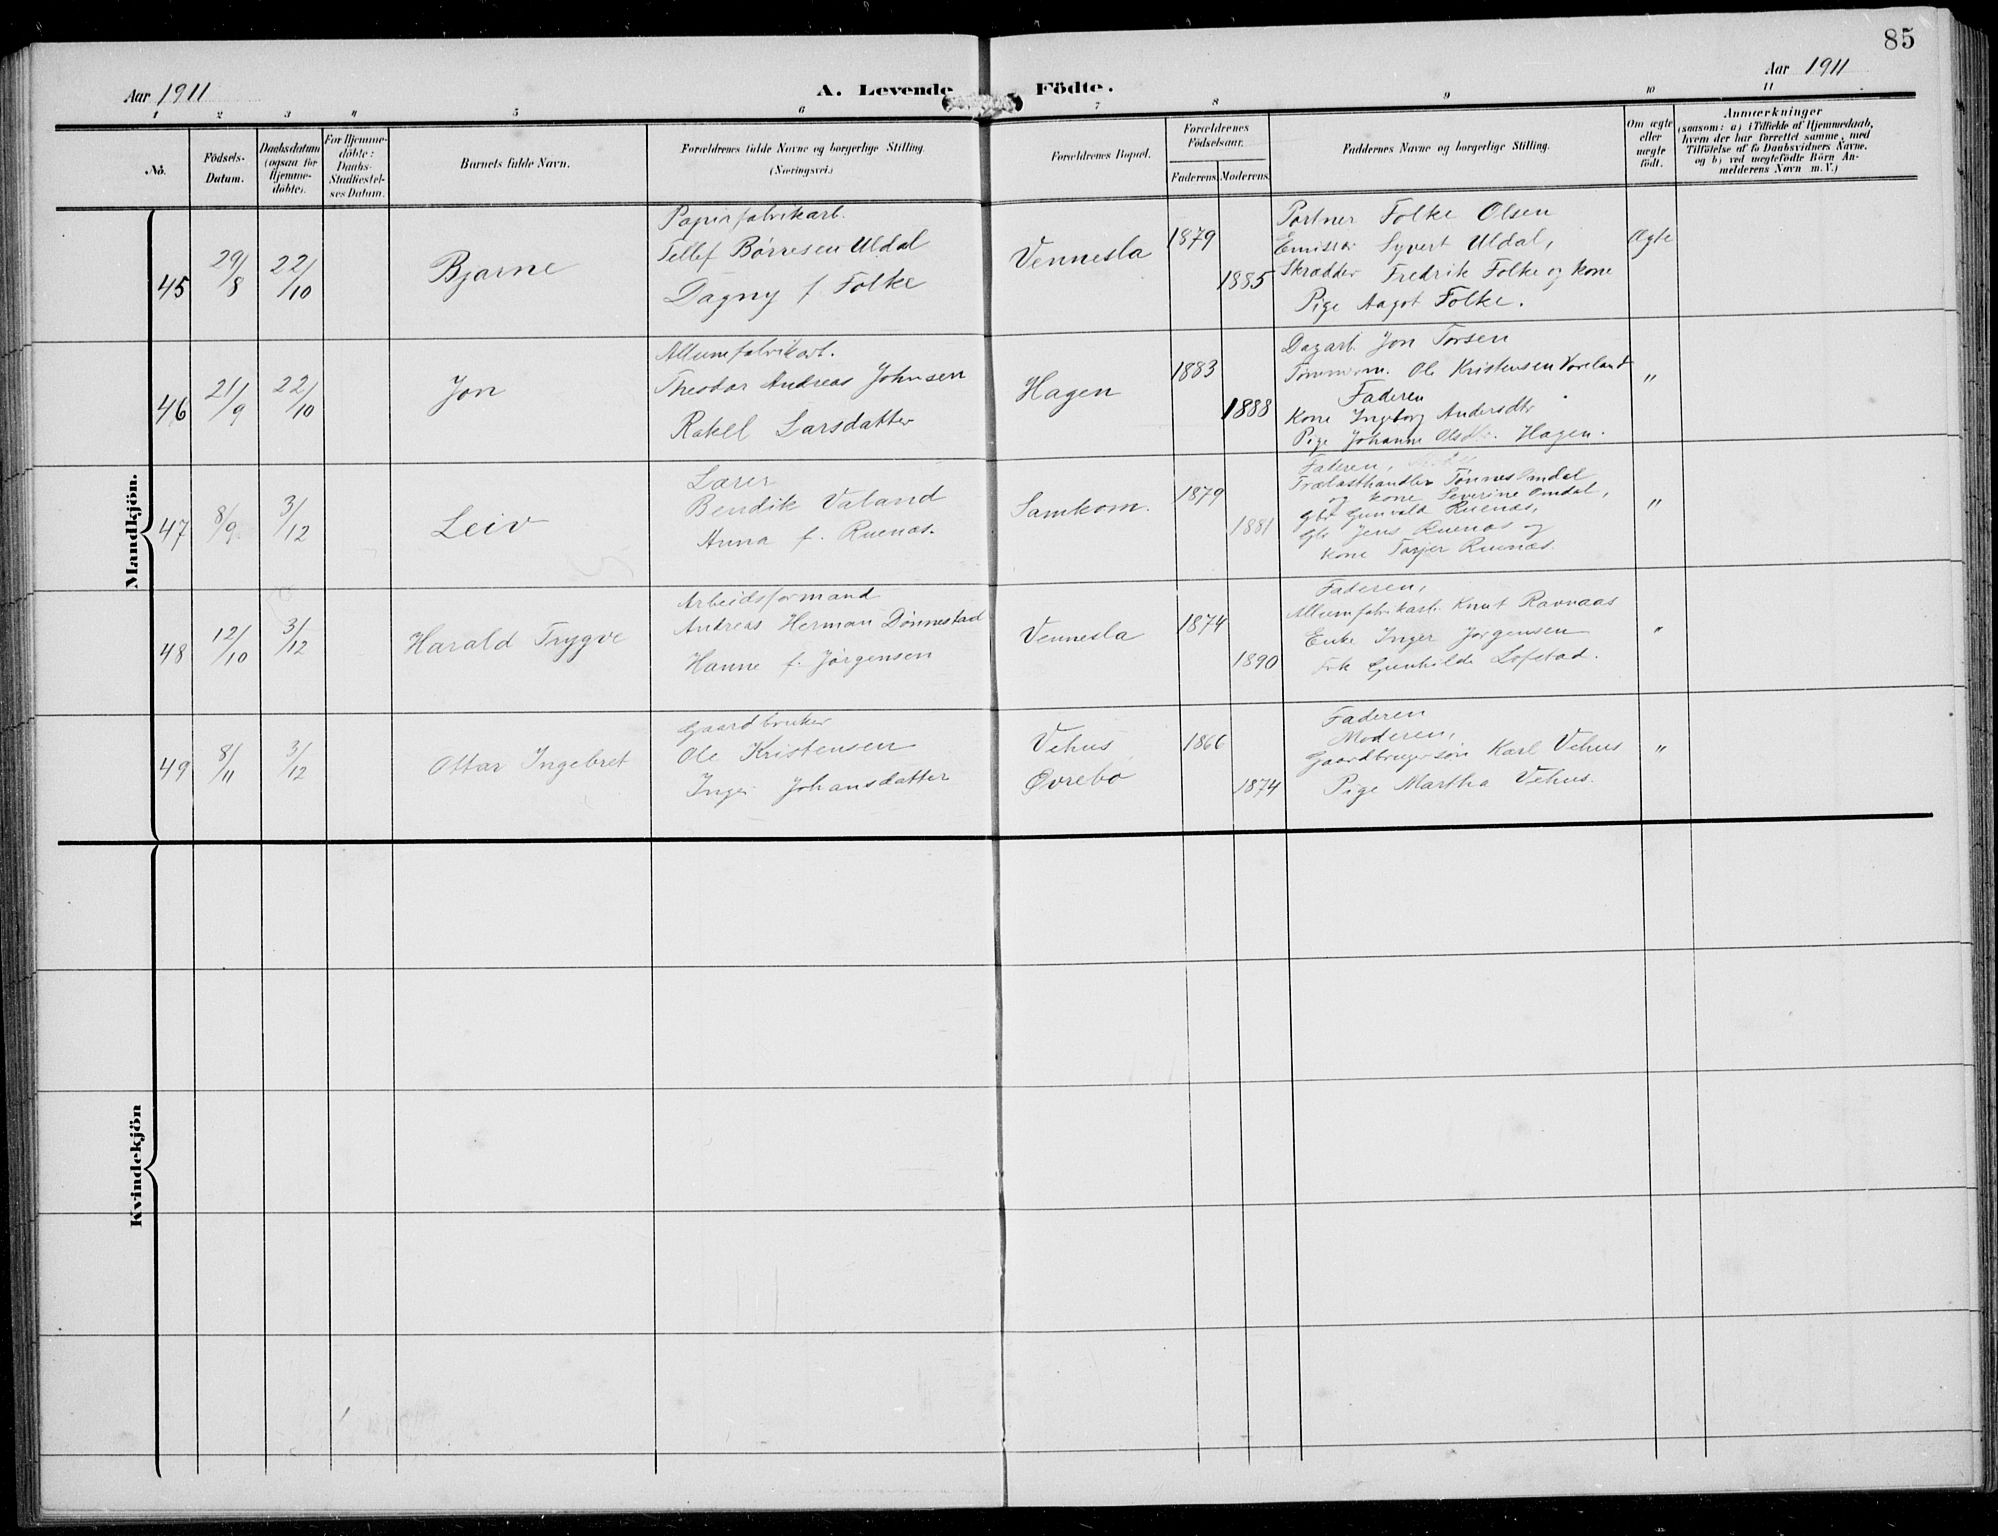 85
Aar 1911
A. Levende Födte.
Aar 1911
1 2 3 4 5 6 7 8 9 10 11
No.
Födsels-
Datum.
Daabsdatum
(ogsaa for
Hjemme-
döbte).
For Hjemme-
döbte:
Daabs-
Stadfæstel-
ses Datum.
Barnets fulde Navn.
Forældrenes fulde Navne og borgerlige Stilling.
(Næringsvei.)
Forældrenes Bopæl.
Forældrenes
Födselsaar.
Faderens.
Moderens.
Faddernes Navne og borgerlige Stilling.
Om ægte
eller
uægte
födt.
Anmærkninger
(saasom: a) i Tilfælde af Hjemmedaab,
hvem der har forrettet samme, med
Tilföielse af to Daabsvidners Navne,
og b) ved uægtefödte Börn An-
melderens Navn m. V.)
Mandkjön.
45
29/8
22/10
Bjarne
Papirfabrikarb.
Tellef Børresen Uldal
Dagny f Folke
Vennesla
1879
1885
Portner Folke Olsen
Emissær Syvert Uldal,
Skrædder Fredrik Folke og kone
Pige Aagot Folke.
Ægte
46
21/9
22/10
Jon
Allumfabrikarb.
Theodor Andreas Johnsen
Rakel Larsdatter
Hagen
1883
1888
Dagarb. Jon Torsen
Tømmerm. Ole Kristensen Voreland
Faderen
Kone Ingeborg Andersdtr
Pige Johanne Olsdtr. Hagen.
"
47
8/9
3/12
Leiv
Lærer
Bendik Valand
Anna f. Ruenæs.
Samkom.
1879
1881
Faderen,
Trælasthandler Tønnes Omdal
og kone Severine Omdal,
gbr Gunvald Ruenæs,
gbr Jens Ruenæs og
kone Torjer Ruenæs.
"
48
12/10
3/12
Harald Trygve
Arbeidsformand
Andreas Herman Dønnestad
Hanne f. Jørgensen
Vennesla
1874
1890
Faderen,
Allumfabrikarb. Knut Ravnaas
Enke Inger Jørgensen
Frk Gunhilde Lofstad.
"
49
8/11
3/12
Ottar Ingebret
Gaardbruker
Ole Kristensen
Inger Johansdatter
Vehus
Øvrebø
1866
1874
Faderen
Moderen,
Gaardbrugersøn Karl Vehus
Pige Martha Vehus.
"
Kvindekjön